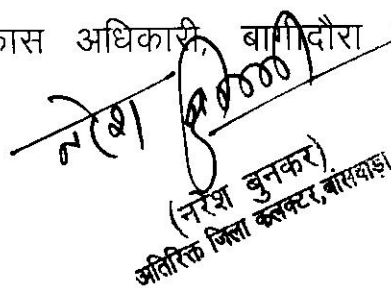 ास अधिकारी, बागीदौरा
नरेश
(नरेश बुनकर)
अतिरिक्त जिला कलक्टर, बांसवाड़ा